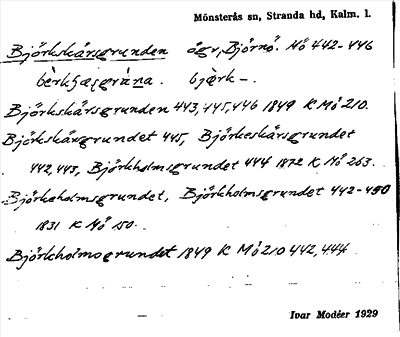 Mönsterås sn, Stranda hd, Kalm. l.
Björkskärsgrunden ögr, Björnö. Mö 442-446
bjærk-.
Björkskärsgrunden 443, 445, 446 1849 K Mö 210.
Björkskärgrundet 445, Björkeskärsgrundet
442, 443, Björkholmsgrundet 444 1872 K Mö 263.
Björkeholmsgrundet, Björkholmsgrundet 442-450
1831 K Mö 150.
Björkholmsgrundet 1849 K Mö 210 442, 444
Ivar Modéer 1929